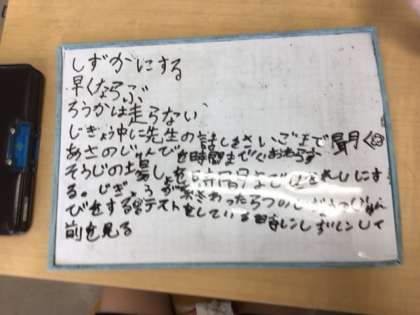 しずかにする
早くならぶ
ろうかは走らない
じぎょう中に先生の話しをさいごまで聞く
あさのじゅんびを時間までにおわらす
そうじの場しょを時間までにきれいにす
る。じぎょうが おわったらつの
びをする テストをしている時にしずかにして
前を見る